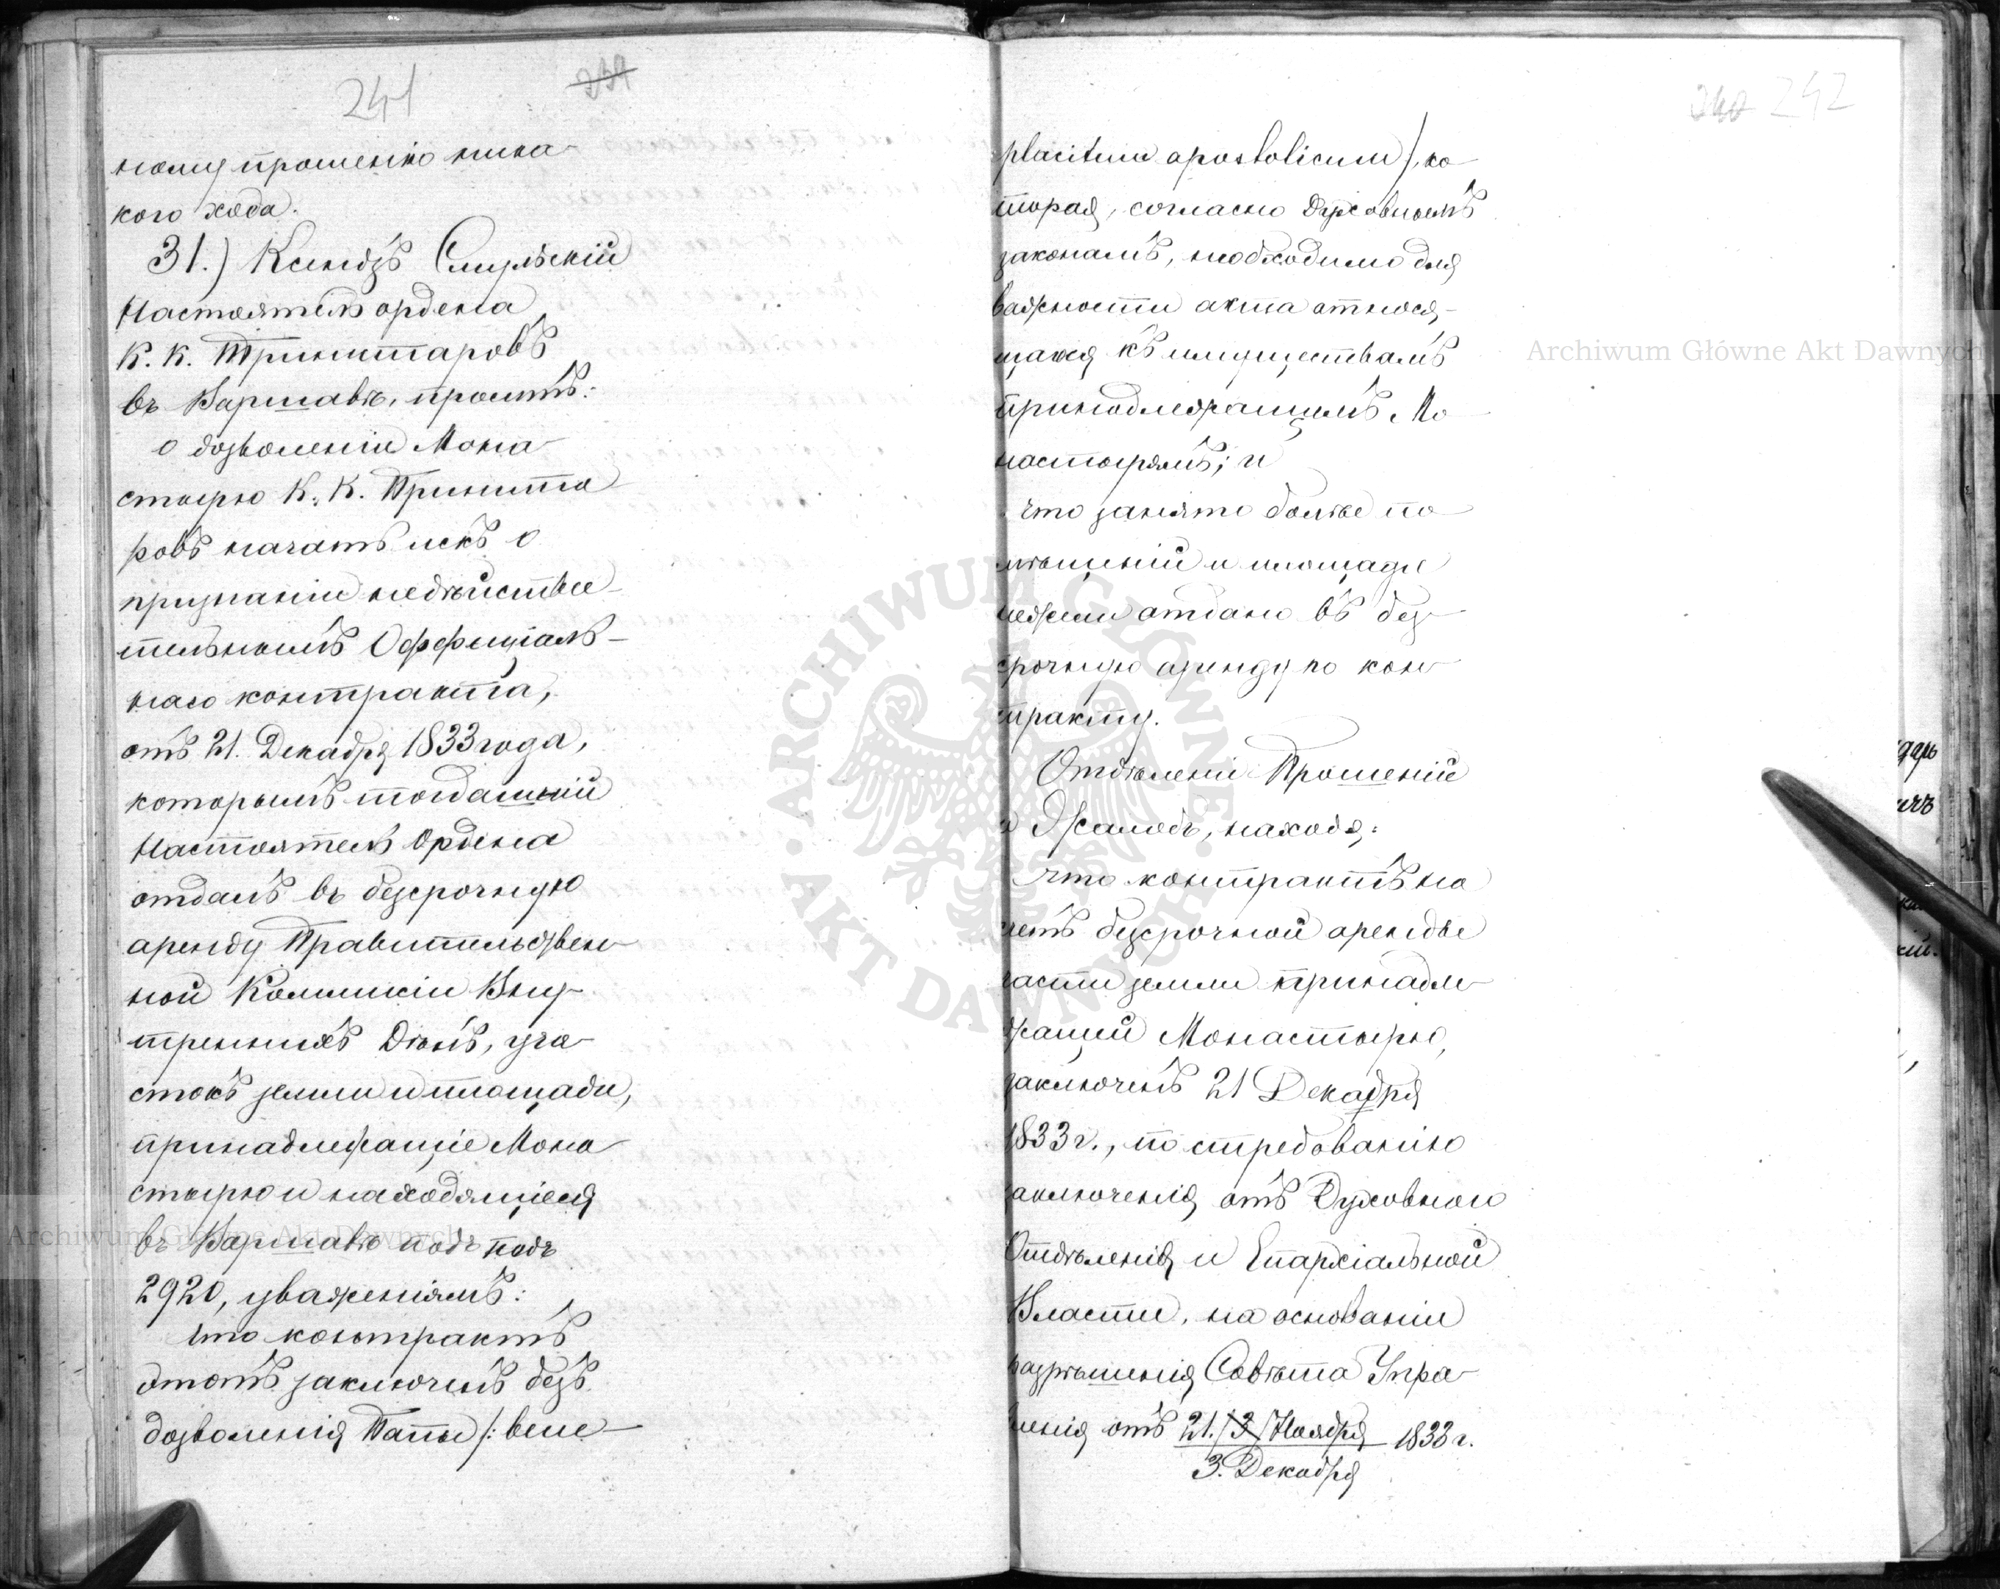 241
239
ному прошенію ника-
кого хода.
31.) Ксендзъ Смульскій
Настоятель ордена
К. К. Тринитаровъ
въ Варшавѣ, проситъ:
о дозволеніи Мона-
стырю К. К. Тринита-
ровъ начать искъ о
признаніи недѣйстви-
тельнымъ Оффиціаль-
наго контракта,
отъ 21. Декабря 1833 года,
которымъ тогдашній
Настоятель Ордена
отдалъ въ безсрочную
аренду Правительствен-
ной Коммисіи Вну-
треннихъ Дѣлъ, уча-
стокъ земли и площади,
принадлежащіе Мона-
стырю и находящіеся
въ Варшавѣ подъ подъ
2920, уваженіямъ:
что контрактъ
этотъ заключенъ безъ
дозволенія Папы /: bene-
240 242
placitum apostolicum /, ко-
торая, согласно Духовнымъ
законамъ, необходимо для
важности акта относя-
щаюся къ имуществамъ
принадлежащимъ Мо-
настырямъ; и
что занято болѣе по-
мѣщеній и площади
нежели отдано въ без-
срочную аренду по кон-
тракту.
Отдѣленіе Прошеній
и Жалобъ, находя:
что контрактъ на
счетъ безсрочной аренды
части земли принадле-
жащей Монастырю,
заключенъ 21 Декабря
1833 г., по стребованію
заключенія отъ Духовнаго
Отдѣленія и Епархіальной
Власти, на основаніи
разрѣшенія Совѣта Упра-
вленія отъ 21./3/Ноября 1833 г.
3. Декабря
Archiwum Główne Akt Dawnych
Archiwum Główne Akt Dawnych
ARCHIWUM GŁÓWNE · AKT DAWNYCH ·